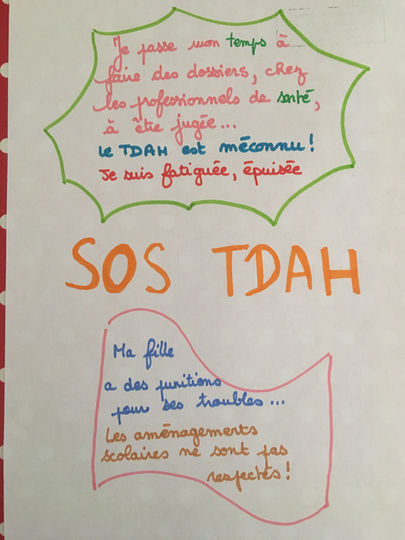 Je passe mon temps à
faire des dossiers, chez
les professionnels de santé,
à être jugée...
Le TDAH est méconnu !
Je suis fatiguée, épuisée
SOS TDAH
Ma fille
a des punitions
pour ses troubles...
Les aménagements
scolaires ne sont pas
respectés !